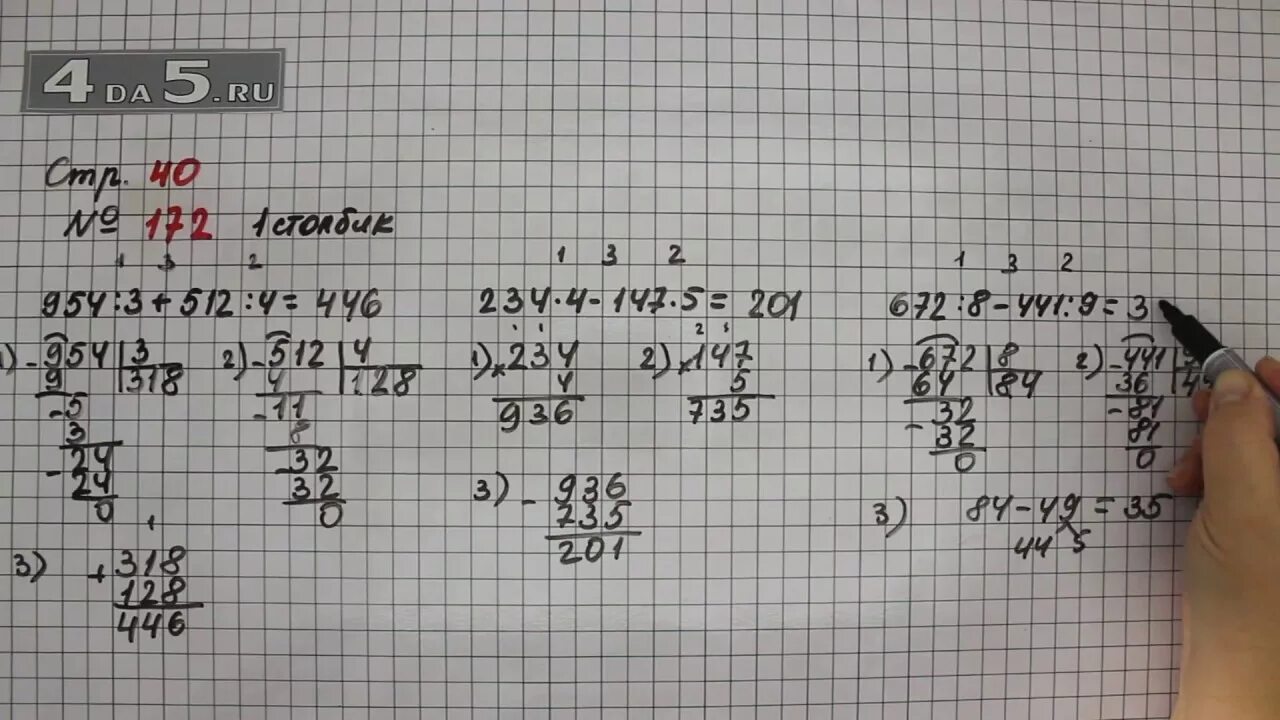 4DA5.RU
Стр. 40
№ 172 1 столбик
1 3 2
954:3+512:4=446
1) -954 |3
9 318
-5
3
-24
24
0
2) -512 |4
4 128
-11
8
-32
32
0
1
3) +318
128
446
1 3 2
234·4-147·5=201
1 1
1) ×234
4
936
2 3
2) ×147
5
735
3) -936
735
201
1 3 2
672:8-441:9=3
1) -672 |8
64 84
-32
32
0
2) -441
36
-81
81
0
3) 84-49=35
44 5